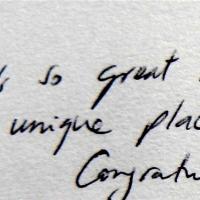 so great
unique plac
Congratu